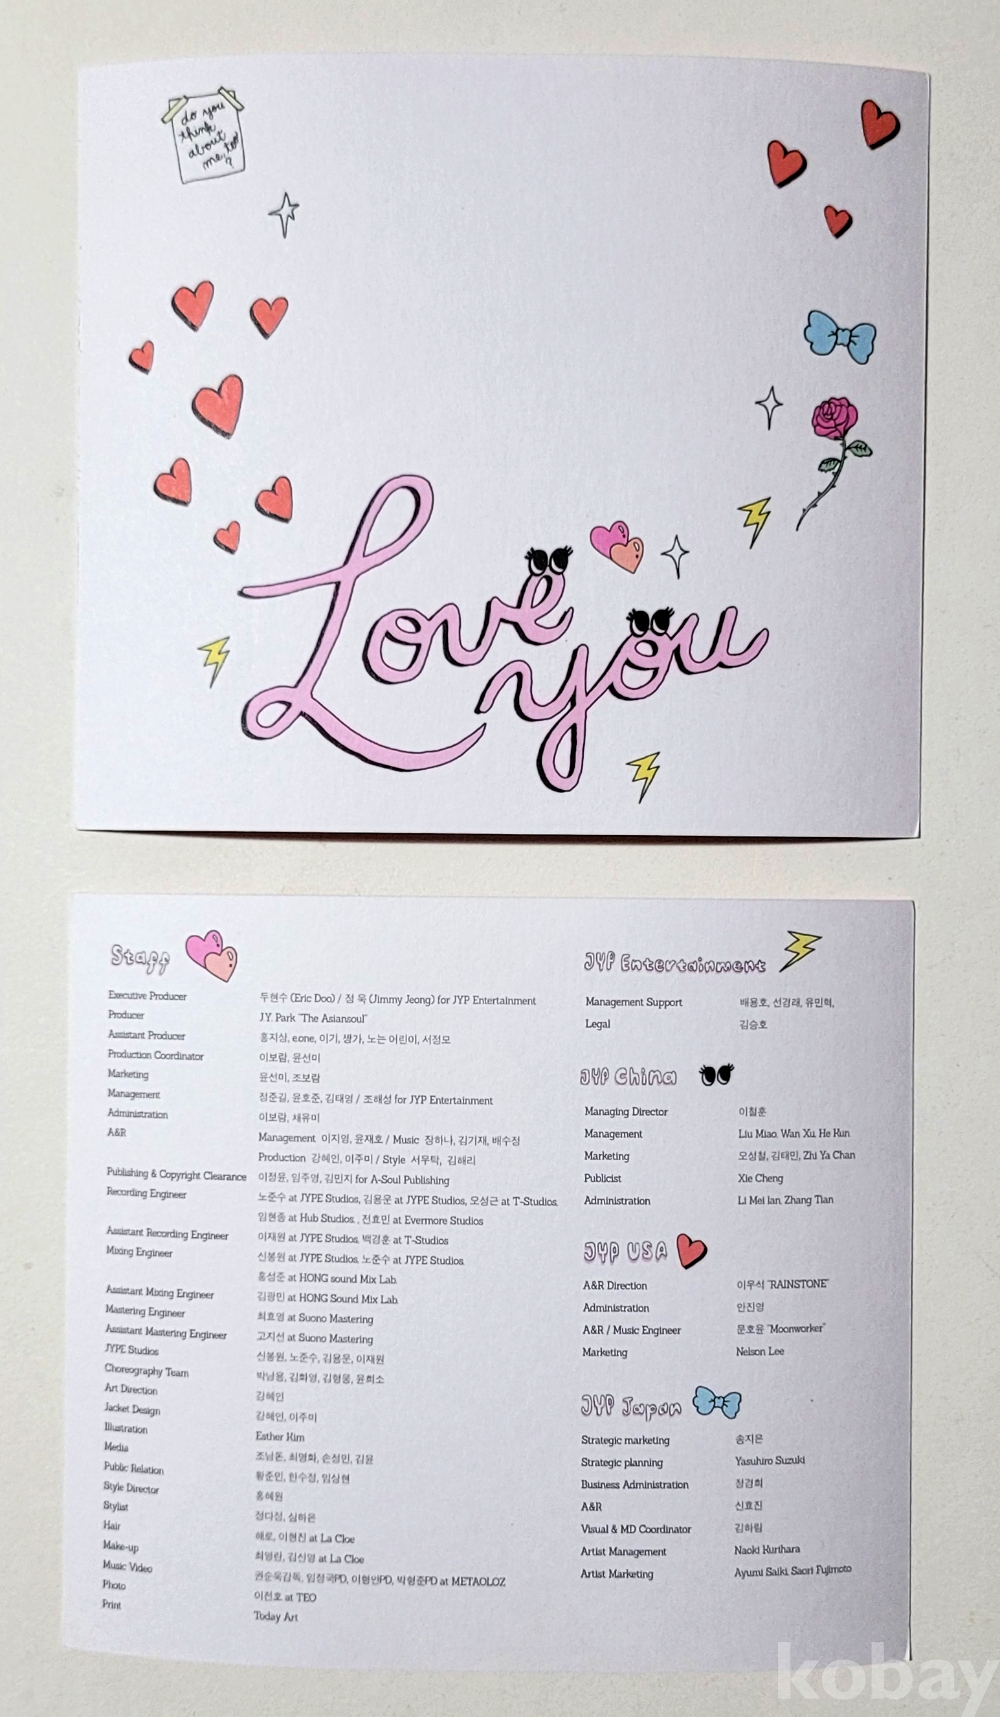 do you
think
about
me, too
?
Love
you
Staff
Executive Producer 두현수 (Eric Doo) / 정 욱 (Jimmy Jeong) for JYP Entertainment
Producer J.Y. Park "The Asiansoul"
Assistant Producer 홍지상, e.one, 이기, 챙가, 노는 어린이, 서정모
Production Coordinator 이보람, 윤선미
Marketing 윤선미, 조보람
Management 정준길, 윤호준, 김태영 / 조해성 for JYP Entertainment
Administration 이보람, 채유미
A&R Management 이지영, 윤재호 / Music 장하나, 김기재, 배수정
Production 강혜인, 이주미 / Style 서우탁, 김해리
Publishing & Copyright Clearance 이정윤, 임주영, 김민지 for A-Soul Publishing
Recording Engineer 노준수 at JYPE Studios, 김용운 at JYPE Studios, 오성근 at T-Studios,
임현종 at Hub Studios, , 전효민 at Evermore Studios
Assistant Recording Engineer 이재원 at JYPE Studios, 백경훈 at T-Studios
Mixing Engineer 신봉원 at JYPE Studios, 노준수 at JYPE Studios
홍성준 at HONG sound Mix Lab
Assistant Mixing Engineer 김광민 at HONG Sound Mix Lab
Mastering Engineer 최효영 at Suono Mastering
Assistant Mastering Engineer 고지선 at Suono Mastering
JYPE Studios 신봉원, 노준수, 김용운, 이재원
Choreography Team 박남용, 김화영, 김형웅, 윤희소
Art Direction 강혜인
Jacket Design 강혜인, 이주미
Illustration Esther Kim
Media 조남돈, 최명화, 손정민, 김윤
Public Relation 황준민, 한수정, 임상현
Style Director 홍혜원
Stylist 정다정, 심하은
Hair 해로, 이현진 at La Cloe
Make-up 최명란, 김신영 at La Cloe
Music Video 권순욱감독, 임정국PD, 이형인PD, 박형준PD at METAOLOZ
Photo 이전호 at TEO
Print Today Art
JYP Entertainment
Management Support 배용호, 선경래, 유민혁,
Legal 김승호
JYP China
Managing Director 이칠훈
Management Liu Miao, Wan Xu, He Kun
Marketing 오성철, 김태민, Zhi Ya Chan
Publicist Xie Cheng
Administration Li Mei lan, Zhang Tian
JYP USA
A&R Direction 이우석 "RAINSTONE"
Administration 안진영
A&R / Music Engineer 문호윤 "Moonworker"
Marketing Nelson Lee
JYP Japan
Strategic marketing 송지은
Strategic planning Yasuhiro Suzuki
Business Administration 장경희
A&R 신효진
Visual & MD Coordinator 김하림
Artist Management Naoki Kurihara
Artist Marketing Ayumi Saiki, Saori Fujimoto
kobay